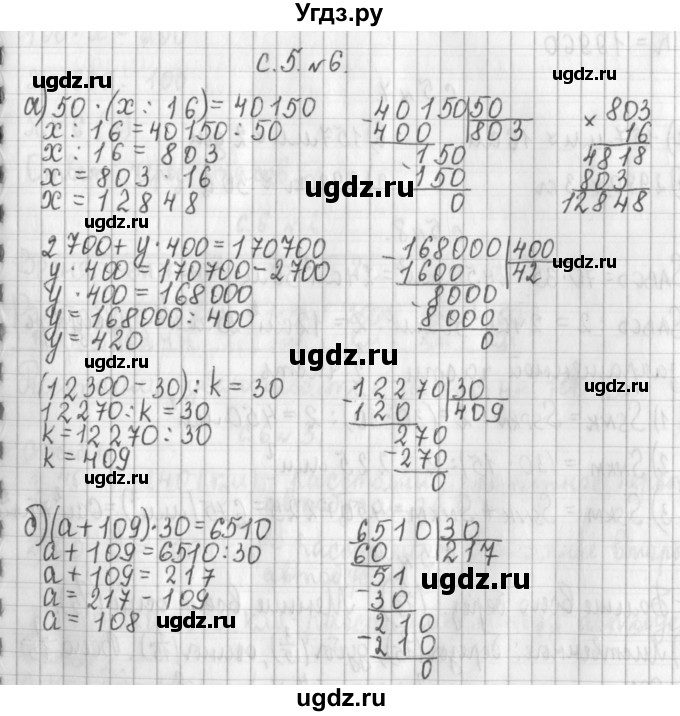 Угдз.ру
с. 5. №6.
ugdz.ru
ugdz.ru
а) 50 · (х : 16) = 40150
х : 16 = 40150 : 50
х : 16 = 803
х = 803 · 16
х = 12848
- 40150 | 50
400 | 803
- 150
150
0
× 803
16
4818
803
12848
ugdz.ru
ugdz.ru
2700 + у · 400 = 170700
у · 400 = 170700 - 2700
у · 400 = 168000
у = 168000 : 400
у = 420
- 168000 | 400
1600 | 42
- 8000
8000
0
ugdz.ru
ugdz.ru
ugdz.ru
(12300 - 30) : k = 30
12270 : k = 30
k = 12270 : 30
k = 409
- 12270 | 30
120 | 409
270
- 270
0
ugdz.ru
ugdz.ru
б) (а + 109) · 30 = 6510
а + 109 = 6510 : 30
а + 109 = 217
а = 217 - 109
а = 108
- 6510 | 30
60 | 217
- 51
30
- 210
210
0
ugdz.ru
ugdz.ru
ugdz.ru